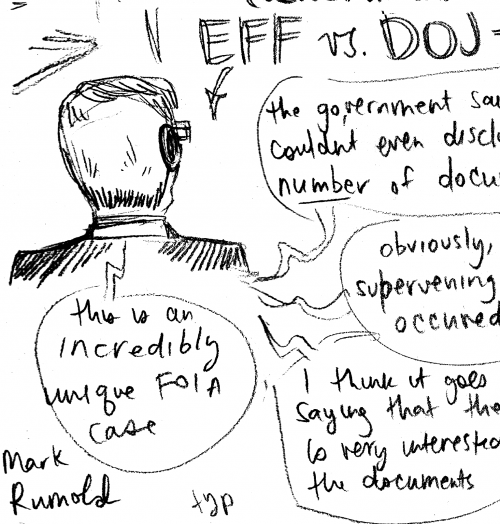 EFF vs. DOJ
the government sa
couldnt even discl
number of docu
obviously,
supervening
occured
this is an
incredibly
unique FOIA
case
I think it goes
saying that the
is very interested
the documents
Mark
Rumold